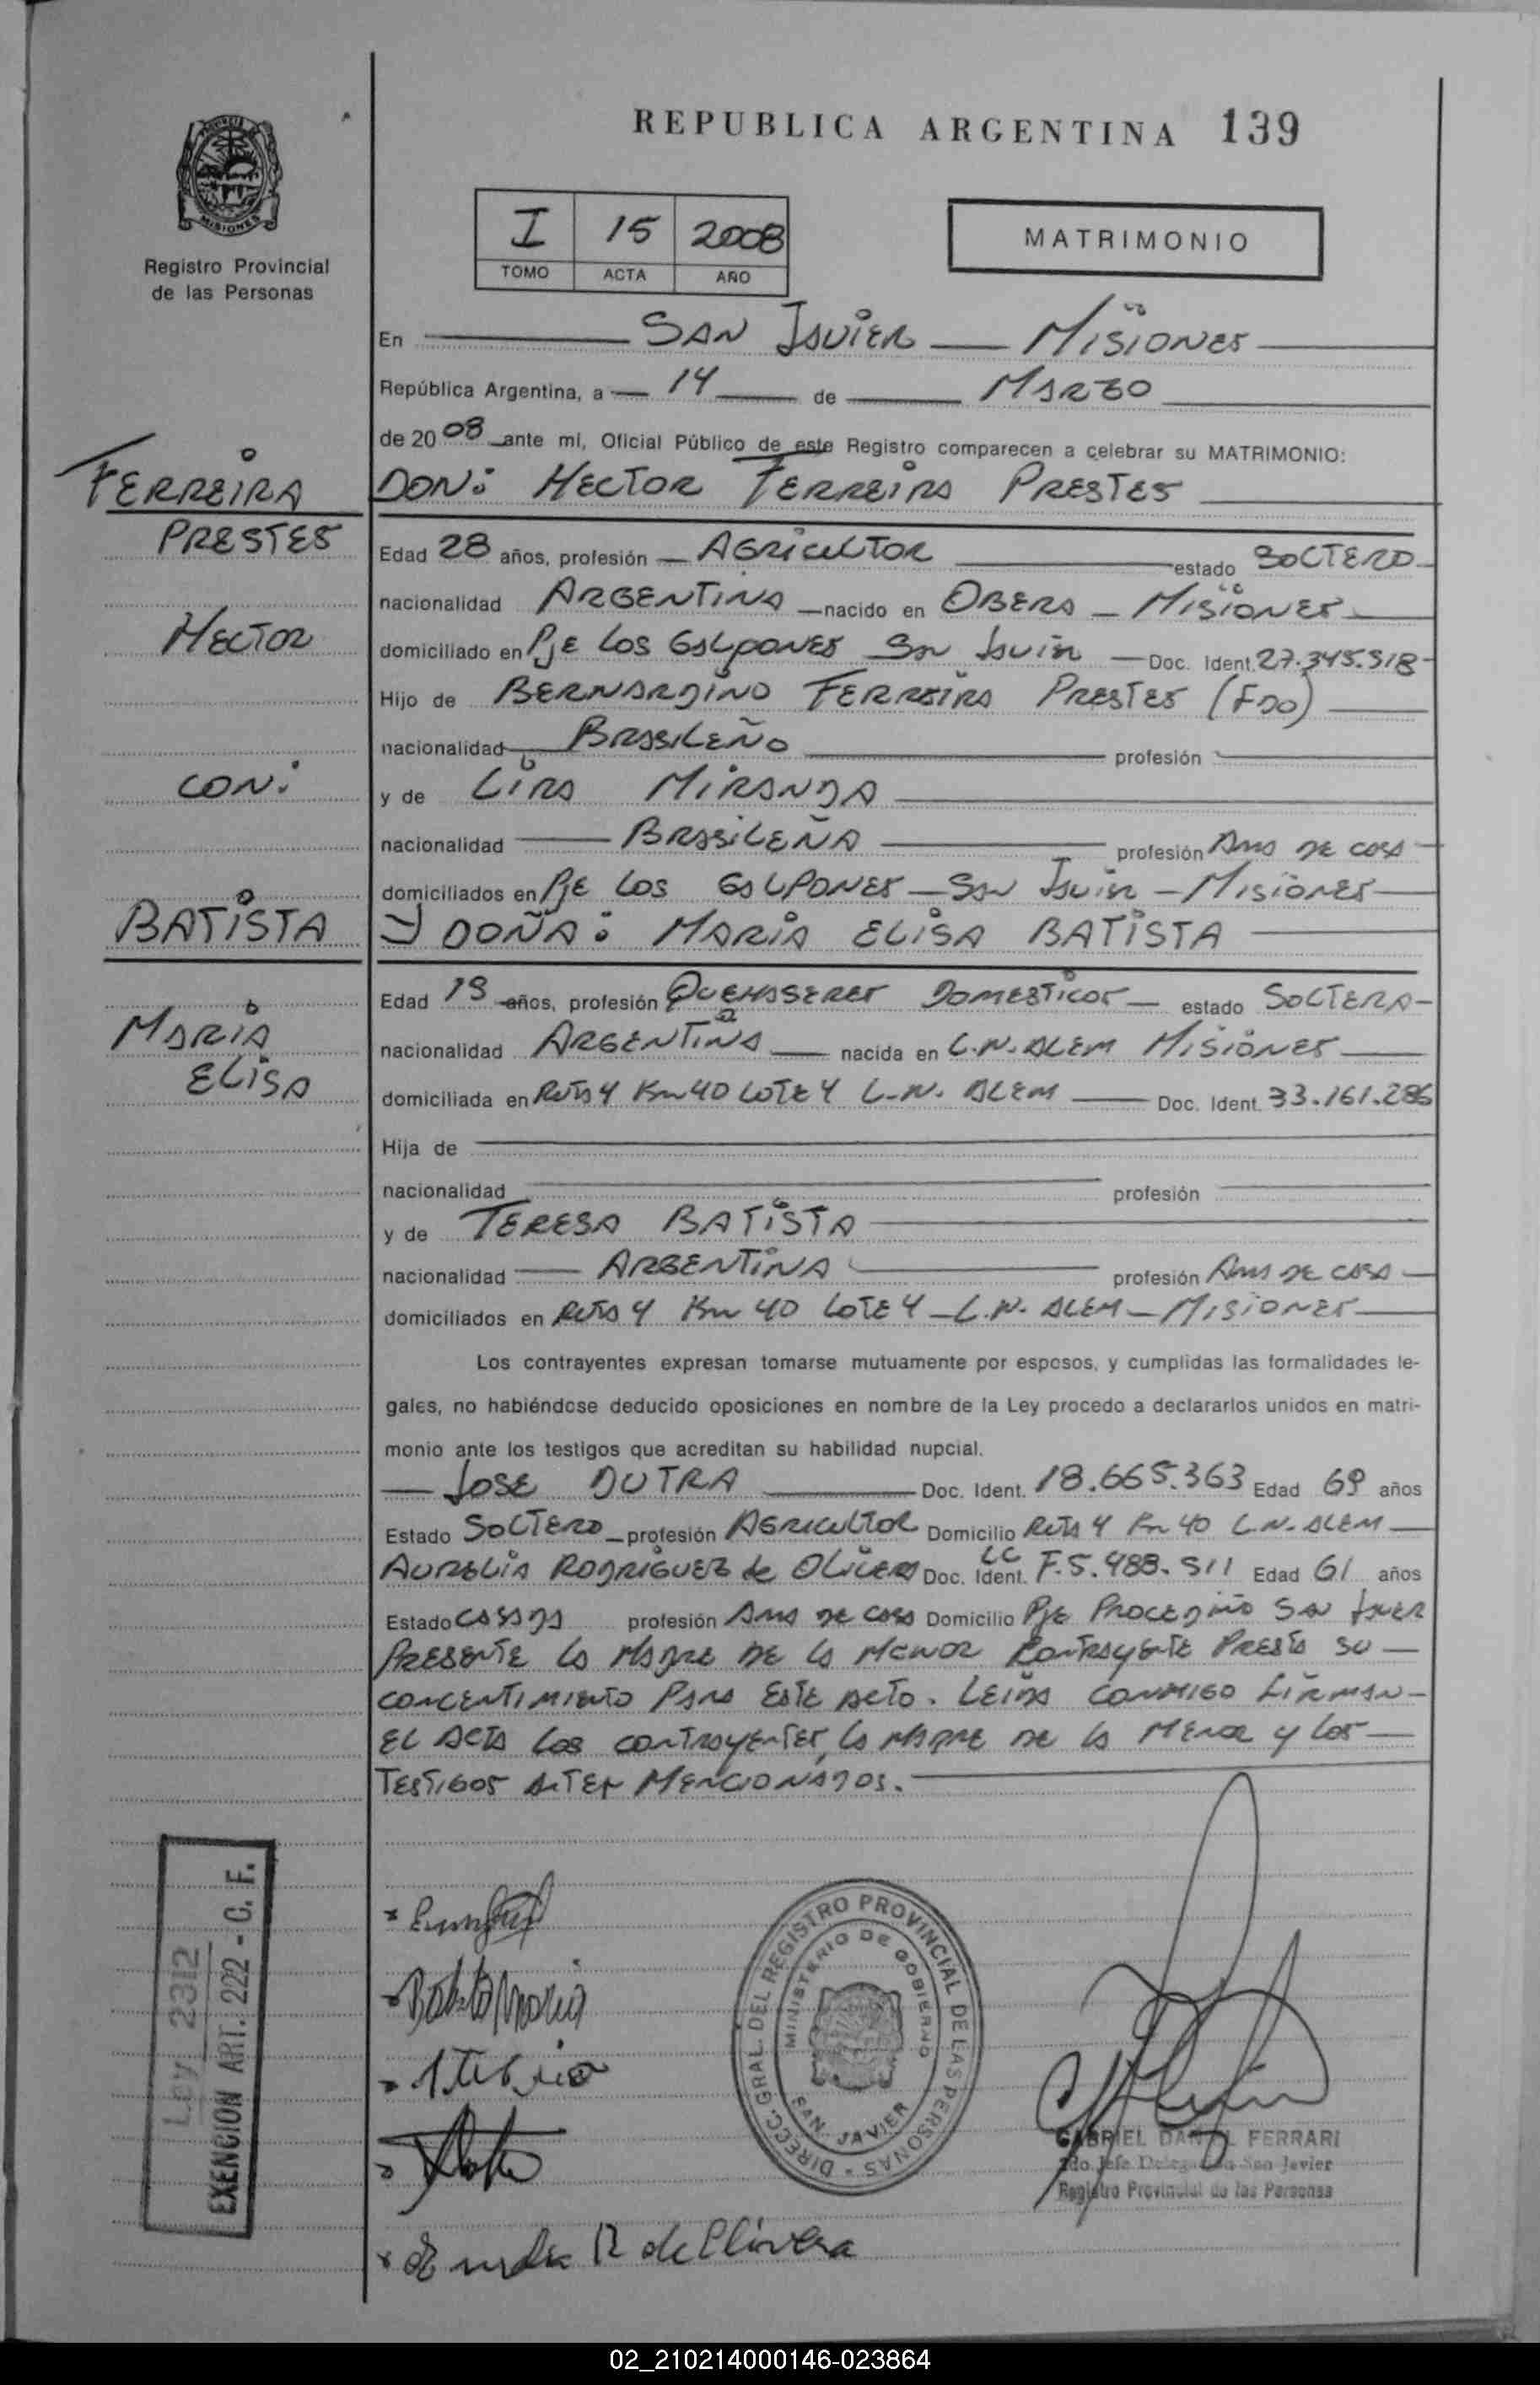 REPUBLICA ARGENTINA 139
MISIONES
Registro Provincial
de las Personas
I 15 2008
TOMO ACTA AÑO
MATRIMONIO
En SAN JAVIER MISIONES
República Argentina, a 14 de MARZO
de 2008 ante mí, Oficial Público de este Registro comparecen a celebrar su MATRIMONIO:
FERREIRA
PRESTES
HECTOR
CON:
BATISTA
MARIA
ELISA
DON: HECTOR FERREIRA PRESTES
Edad 28 años, profesión AGRICULTOR estado SOLTERO
nacionalidad ARGENTINA nacido en OBERA - MISIONES
domiciliado en PJE LOS GALPONES SAN JAVIER Doc. Ident. 27.345.518
Hijo de BERNARDINO FERREIRA PRESTES (FDO)
nacionalidad BRASILEÑO profesión
y de LIRA MIRANDA
nacionalidad BRASILEÑA profesión AMA DE CASA
domiciliados en PJE LOS GALPONES - SAN JAVIER - MISIONES
Y DOÑA: MARIA ELISA BATISTA
Edad 19 años, profesión QUEHASERES DOMESTICOS estado SOLTERA
nacionalidad ARGENTINA nacida en L.N. ALEM MISIONES
domiciliada en RUTA 4 KM 40 LOTE 4 L.N. ALEM Doc. Ident. 33.161.286
Hija de
nacionalidad profesión
y de TERESA BATISTA
nacionalidad ARGENTINA profesión AMA DE CASA
domiciliados en RUTA 4 KM 40 LOTE 4 - L.N. ALEM - MISIONES
Los contrayentes expresan tomarse mutuamente por esposos, y cumplidas las formalidades le-
gales, no habiéndose deducido oposiciones en nombre de la Ley procedo a declararlos unidos en matri-
monio ante los testigos que acreditan su habilidad nupcial.
JOSE DUTRA Doc. Ident. 18.665.363 Edad 69 años
Estado SOLTERO profesión AGRICULTOR Domicilio RUTA 4 KM 40 L.N. ALEM
AURELIA RODRIGUEZ de OLIVERA Doc. Ident. LC F.5.488.511 Edad 61 años
Estado CASADA profesión AMA DE CASA Domicilio PJE SAN JAVIER
PRESENTE LA MADRE DE LA MENOR CONTRAYENTE PRESTA SU
CONCENTIMIENTO PARA ESTE ACTO. LEIDA CONMIGO FIRMAN
EL ACTA LOS CONTRAYENTES, LA MADRE DE LA MENOR Y LOS
TESTIGOS ANTES MENCIONADOS.
Ley 2312
EXENCION ART. 222 - C. F.
Batista Maria
DIRECC. GRAL. DEL REGISTRO PROVINCIAL DE LAS PERSONAS
MINISTERIO DE GOBIERNO
SAN JAVIER
GABRIEL DANIEL FERRARI
2do Jefe Delegación San Javier
Registro Provincial de las Personas
R de Olivera
02_210214000146-023864